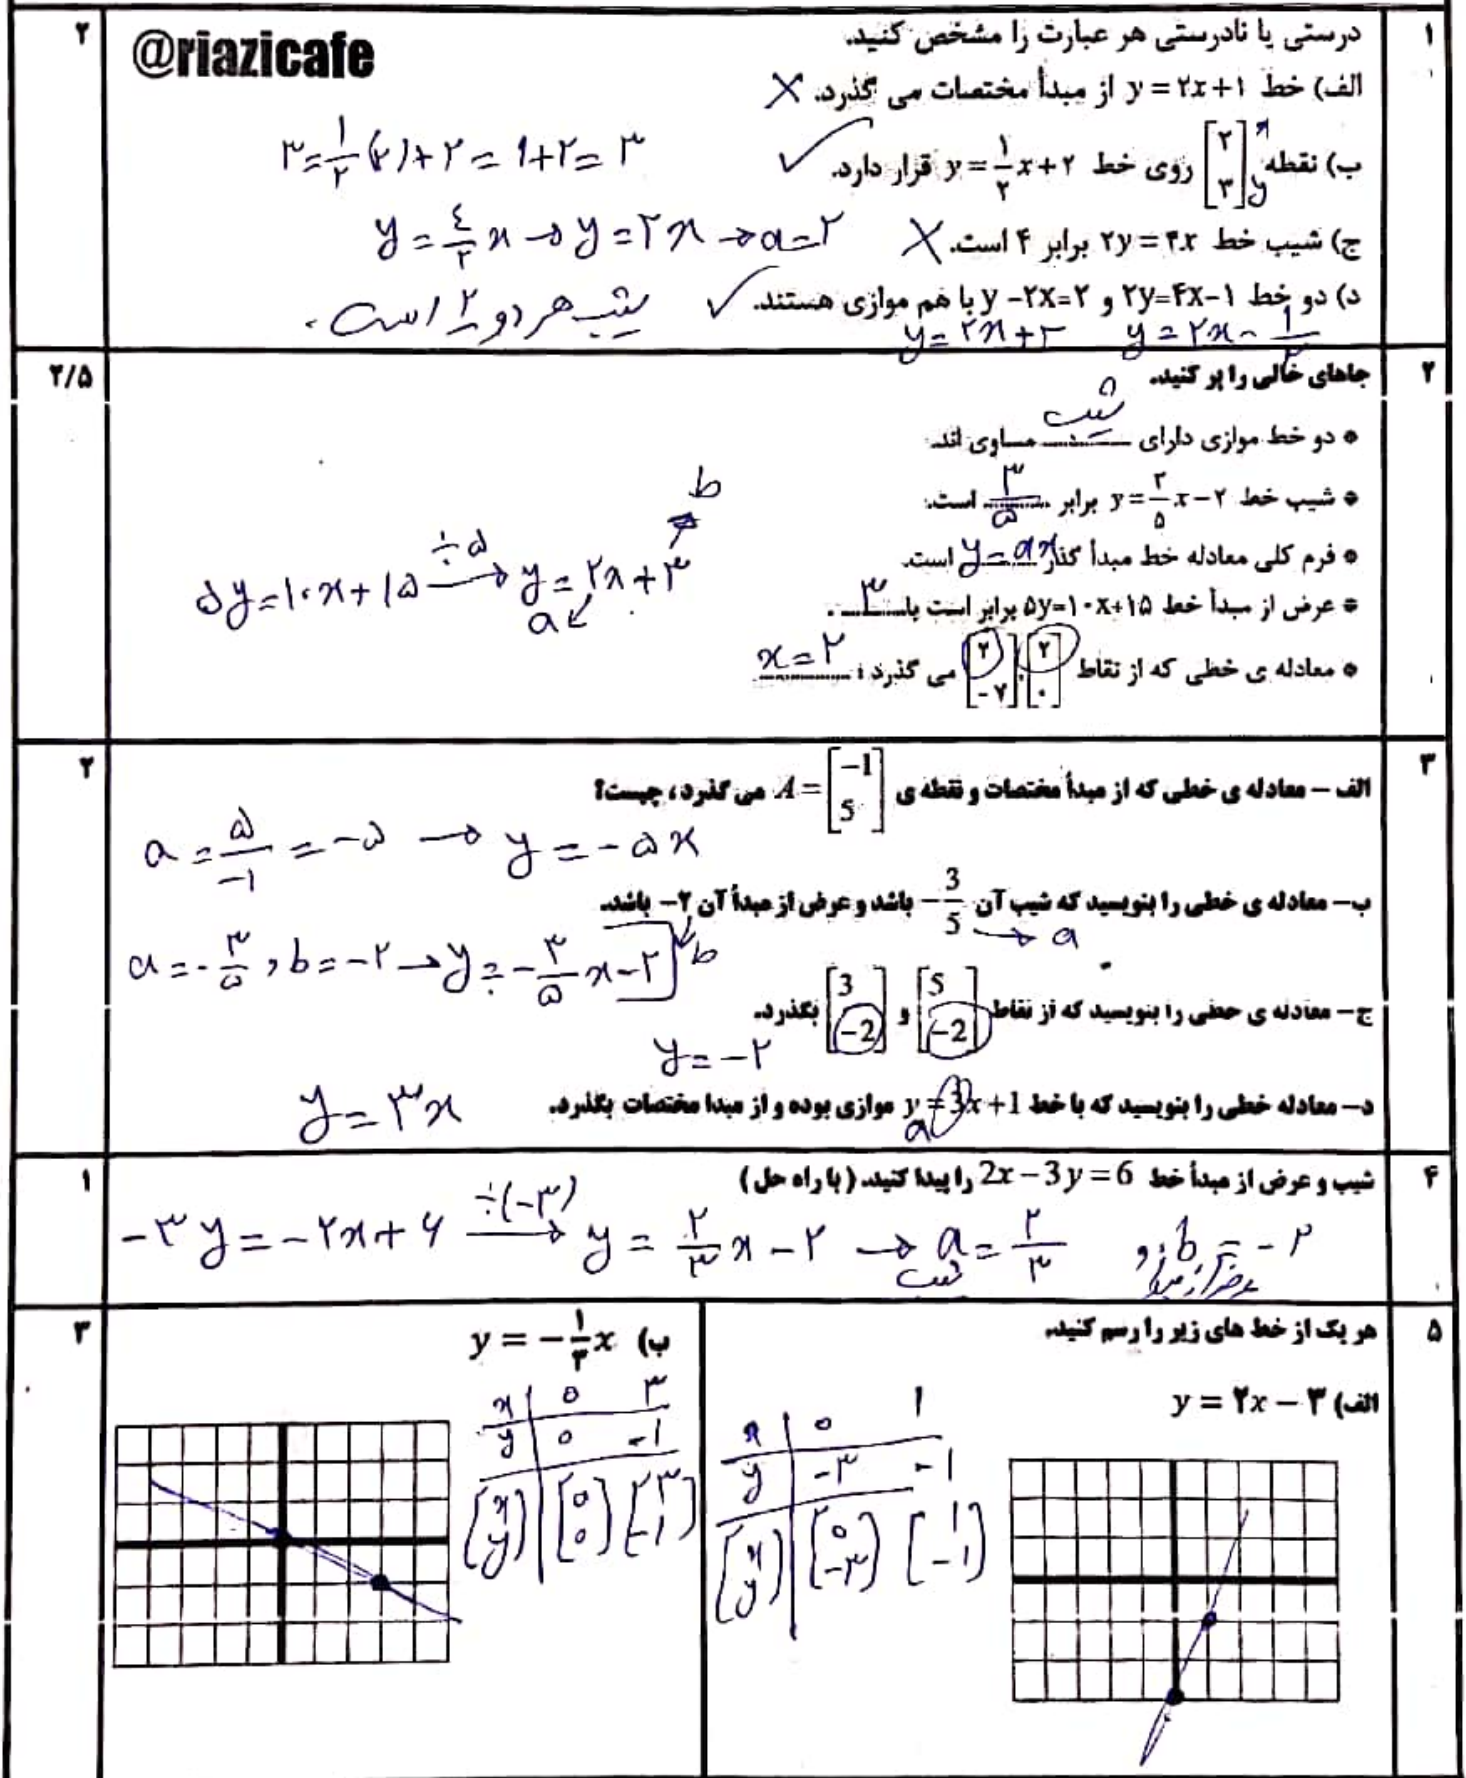 ۱ درستی یا نادرستی هر عبارت را مشخص کنید. ۲
@riazicafe
الف) خط y = ۲x+۱ از مبدأ مختصات می گذرد. ✗
ب) نقطه [۲ ۳] x y روی خط y = ۱/۲ x + ۲ قرار دارد. ✓ ۳ = ۱/۲ (۲) + ۲ = ۱+۲ = ۳
ج) شیب خط ۲y = ۴x برابر ۴ است. ✗ y = ۴/۲ x → y = ۲x → a = ۲
د) دو خط ۲y=۴x-۱ و y -۲x=۳ با هم موازی هستند. ✓ شیب هر دو ۲ است.
y = ۲x - ۱/۲ y = ۲x + ۳
۲ جاهای خالی را پر کنید. ۲/۵
* دو خط موازی دارای شیب مساوی اند.
* شیب خط y = ۳/۵ x - ۲ برابر ۳/۵ است.
* فرم کلی معادله خط مبدأ گذر y = ax است.
* عرض از مبدأ خط ۵y=۱۰x+۱۵ برابر است با ۳ .
۵y = ۱۰x + ۱۵ ÷۵ → y = ۲x + ۳ a b
* معادله ی خطی که از نقاط [۲ ۰] , [۲ -۷] می گذرد : x = ۲
۳ الف – معادله ی خطی که از مبدأ مختصات و نقطه ی A = [-1 5] می گذرد، چیست؟ ۲
a = ۵/-۱ = -۵ → y = -۵x
ب- معادله ی خطی را بنویسید که شیب آن -3/5 باشد و عرض از مبدأ آن ۲- باشد.
→ a b
a = -۳/۵ , b = -۲ → y = -۳/۵ x - ۲
ج – معادله ی خطی را بنویسید که از نقاط [5 -2] و [3 -2] بگذرد.
y = -۲
د – معادله خطی را بنویسید که با خط y = 3x + 1 موازی بوده و از مبدا مختصات بگذرد. y = ۳x
a
۴ شیب و عرض از مبدأ خط 2x - 3y = 6 را پیدا کنید. ( با راه حل ) ۱
-۳y = -۲x + ۶ ÷(-۳) → y = ۲/۳ x - ۲ → a = ۲/۳ و b = -۲
شیب عرض از مبدأ
۵ هر یک از خط های زیر را رسم کنید. ۳
الف) y = ۲x - ۳
x 0 ۱
y -۳ -۱
[x y] [0 -۳] [۱ -۱]
ب) y = -۱/۳ x
x 0 ۳
y 0 -۱
[x y] [0 0] [۳ -۱]